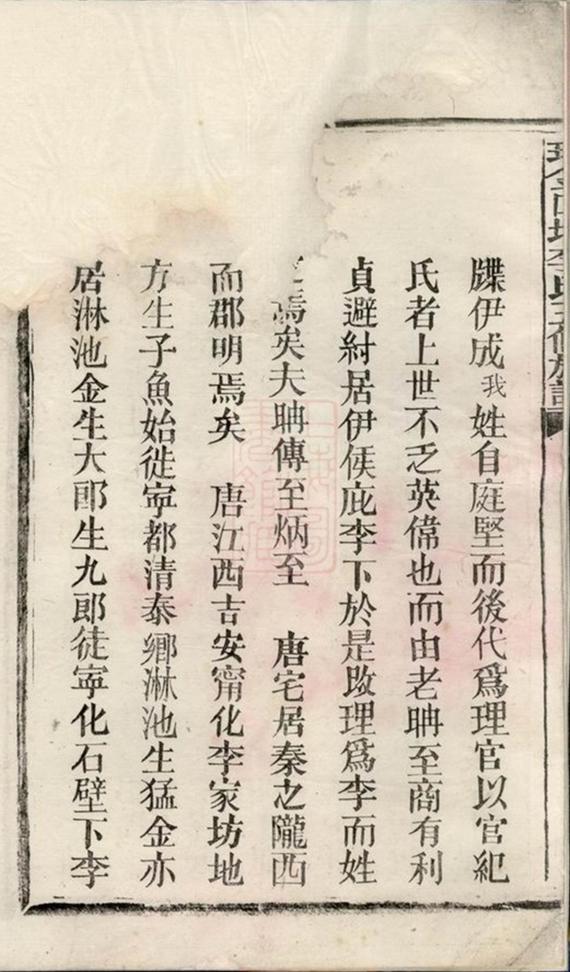 牒伊成我姓自庭堅而後代爲理官以官紀
氏者上世不乏英偉也而由老聃至商有利
貞避紂居伊侯庇李下於是改理爲李而姓
焉矣夫聃傳至炳至 唐宅居秦之隴西
而郡明焉矣 唐江西吉安甯化李家坊地
方生子魚始徙寧都清泰鄉淋池生猛金亦
居淋池金生大郎生九郎徒寧化石壁下李